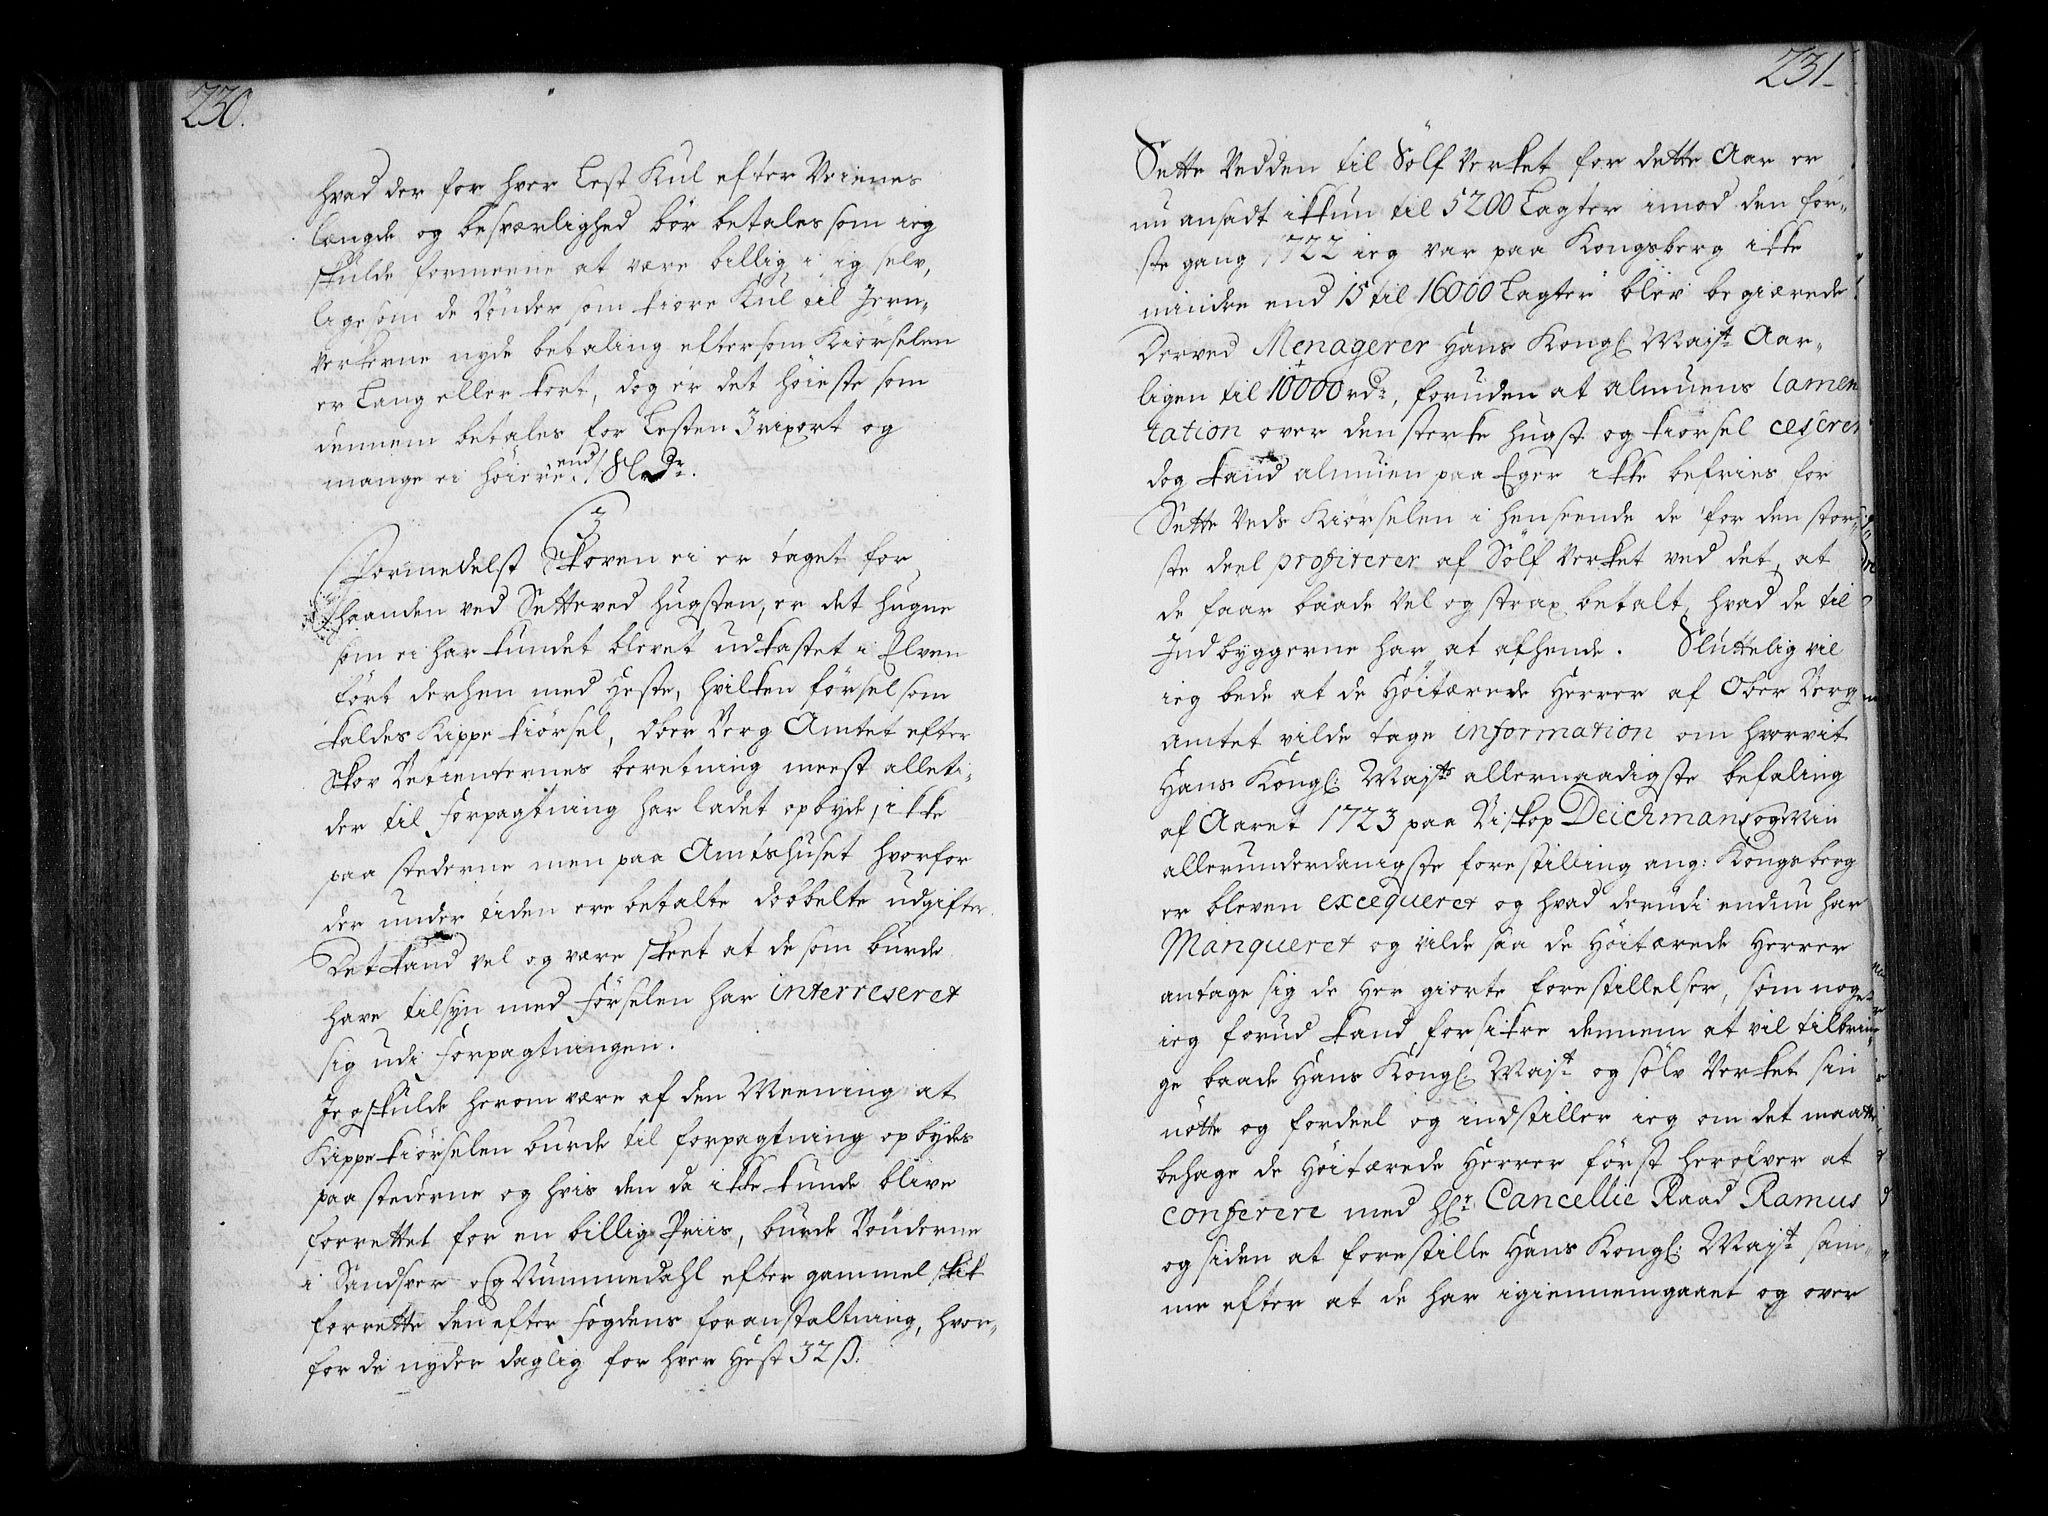 230.
hvad der for hver Lest Kul efter Veienes
længde og besværlighed bör betales som ieg
skulde formeene at være billig i sig selv,
ligesom de Bönder som kiöre Kul til Jern-
verkerne nyde betaling eftersom Kiörselen
er Lang eller kort, dog er det höieste som
dennem betales for Lesten 3 rixort og
mange ei höiere end 1 Slrdr.
3
Formedelst Skoven ei er taget for
haanden ved Setteved hugsten, er det hugne
som ei har kundet blevet udkastet i Elven
fört derhen med Heste, hvilken försel som
kaldes Kippe kiörsel, Ober Berg Amtet efter
Skov Betienternes beretning meest alleti-
der til forpagtning har ladet opbyde, ikke
paa stederne men paa Amtshuset hvorfor
der under tiden ere betalte dobbelte udgifter.
Det kand vel og være skeet at de som burde
have tilsyn med förselen har interreseret
sig udi forpagtningen.
Jeg skulde herom være af den Meening at
Kippe kiörselen burde til forpagtning opbydes
paa stederne og hvis den da ikke kunde blive
forrettet for en billig Priis, burde Bönderne
i Sandsver og Nummedahl efter gammel skik
forrette den efter Fogdens foranstaltning, hvor-
for de nyder daglig for hver Hest 32 ß.
231
Sette Vedden til Sölf Verket for dette Aar er
nu ansadt ikkun til 5200 Lagter imod den för-
ste gang 1722 ieg var paa Kongsberg ikke
mindre end 15 til 16000 Lagter blev begiærede
Derved Menagerer Hans Kongl Majt Aar-
ligen til 10000 rdr, foruden at almuens lamen
tation over den sterke hugst og kiörsel cesserer
dog kand almuen paa Eger ikke befries for
Sette Veds Kiörselen i henseende de for den stör-
ste deel profiterer af Sölf Verket ved det, at
de faar baade vel og strax betalt, hvad de til
Indbyggerne har at afhende. Sluttelig vil
ieg bede at de Höitærede Herrer af Ober Berg
amtet vilde tage information om hvorvit
Hans Kongl: Majts allernaadigste befaling
af Aaret 1723 paa Biskop Deichmans og Min
allerunderdanigste forestilling ang: Kongsberg
er bleven exceqveret og hvad derudi endnu har
Manqueret og vilde saa de Höitærede Herrer
antage sig de Her giorte forestillelser, som noget
ieg forud kand forsikre dennem at vil tilbrin-
ge baade Hans Kongl. Majt og sölv Verket sin
nötte og fordeel og indstiller ieg om det maatte
behage de Höitærede Herrer först herofver at
conferere med Hr: Cancellie Raad Ramus
og siden at forestille Hans Kongl: Majt sam-
me efter at de har igiennemgaaet og over